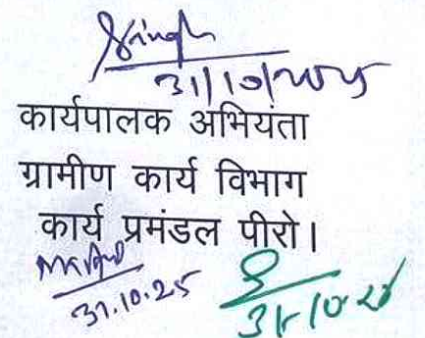 Singh
31/10/2025
कार्यपालक अभियंता
ग्रामीण कार्य विभाग
कार्य प्रमंडल पीरो।
31.10.25
31-10-25